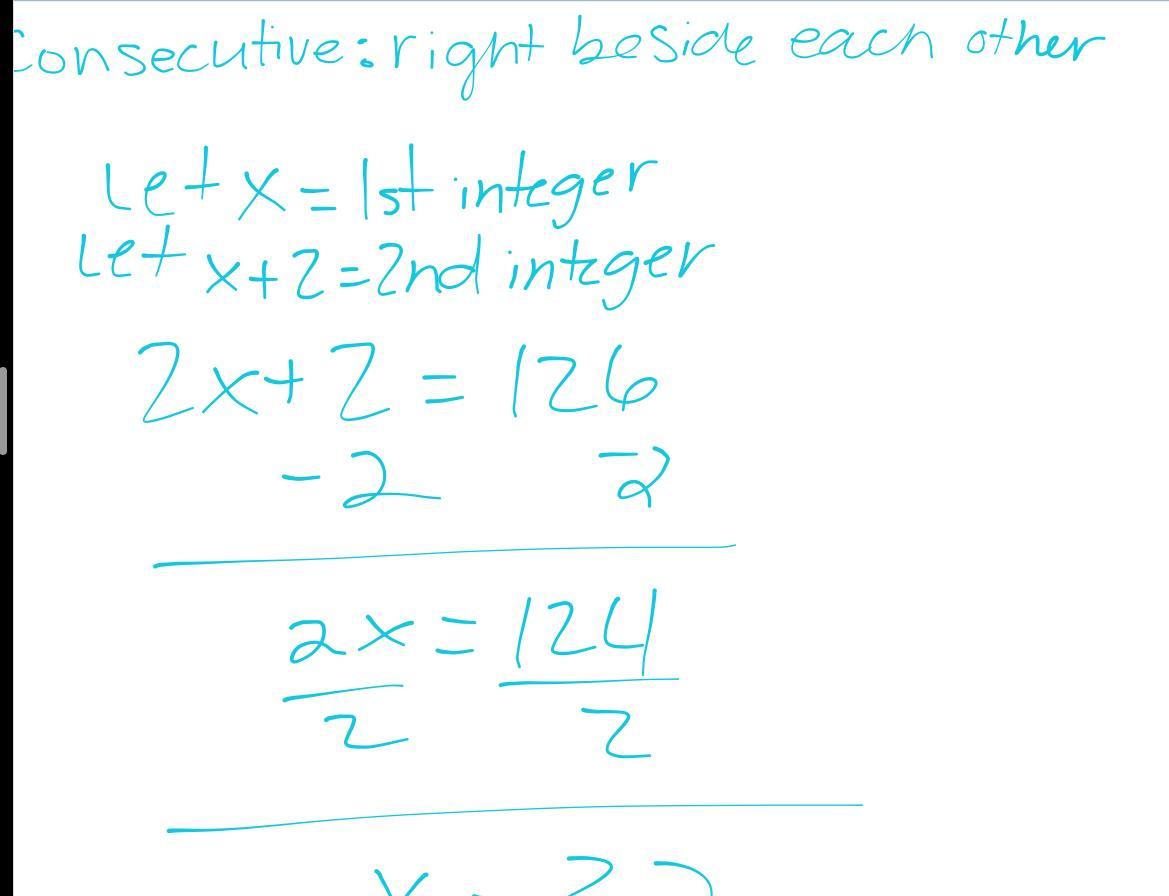 Consecutive: right beside each other
Let x = 1st integer
Let x+2=2nd integer
2x+2 = 126
-2 -2
2x = 124
2 2
x